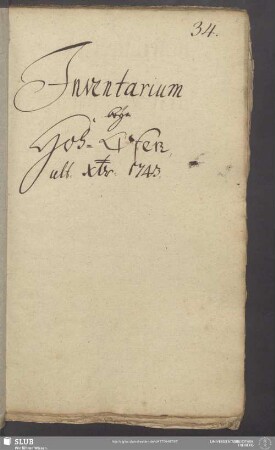 34.
Inventarium
beym
Hoh- Ofen
ult. Xbr. 1743.
SLUB
Wir führen Wissen.